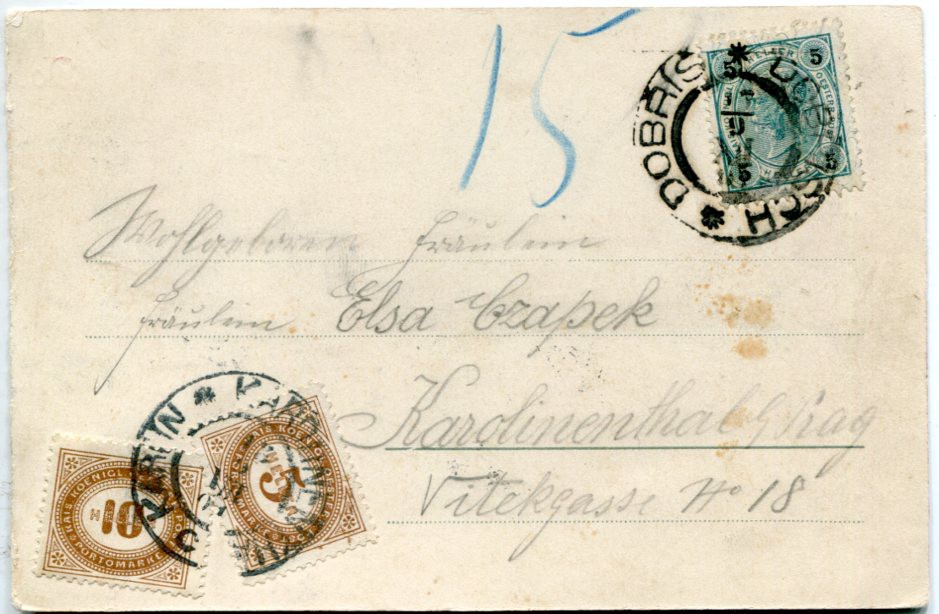 15
5 5 5 5
DOBŘÍŠ * DOBŘISCH *
Wohlgeboren Fräulein
Fräulein Elsa Czapek
Karolinenthal b/ Prag
Vítekgasse No 18
KARLIN * KAROLINENTHAL
10 H
PORTOMARKE
5
PORTOMARKE